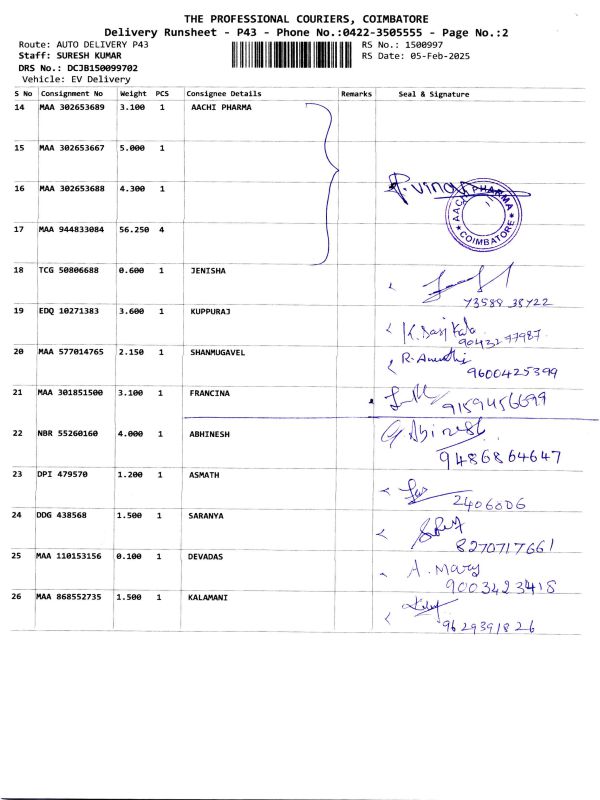 THE PROFESSIONAL COURIERS, COIMBATORE
Delivery Runsheet - P43 - Phone No.:0422-3505555 - Page No.:2
Route: AUTO DELIVERY P43 RS No.: 1500997
Staff: SURESH KUMAR RS Date: 05-Feb-2025
DRS No.: DCJB150099702
Vehicle: EV Delivery
S No Consignment No Weight PCS Consignee Details Remarks Seal & Signature
14 MAA 302653689 3.100 1 AACHI PHARMA
15 MAA 302653667 5.000 1
16 MAA 302653688 4.300 1
P. vinoth
AACHI PHARMA
COIMBATORE
17 MAA 944833084 56.250 4
18 TCG 50806688 0.600 1 JENISHA
73588 38722
19 EDQ 10271383 3.600 1 KUPPURAJ
K. Sasi Kala
90432 77987
20 MAA 577014765 2.150 1 SHANMUGAVEL
9600425399
21 MAA 301851500 3.100 1 FRANCINA
9159456699
22 NBR 55260160 4.000 1 ABHINESH
G. Abinesh
9486864647
23 DPI 479570 1.200 1 ASMATH
2406006
24 DDG 438568 1.500 1 SARANYA
8270717661
25 MAA 110153156 0.100 1 DEVADAS
A. Mary
9003423418
26 MAA 868552735 1.500 1 KALAMANI
9629391826